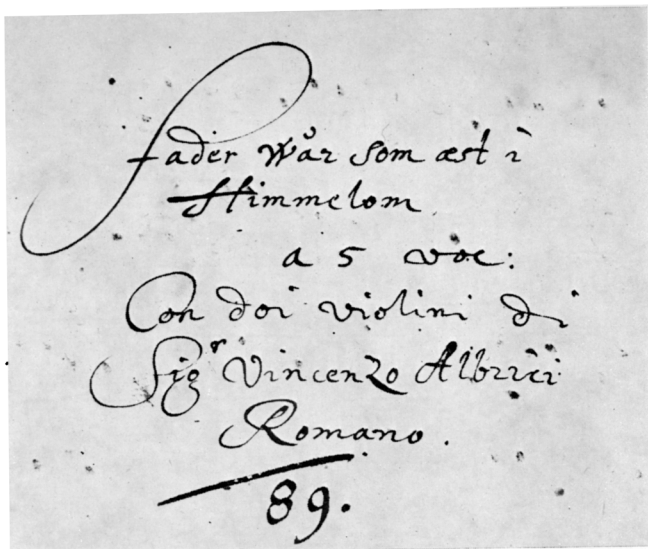 Fader Wår som æst i
Himmelom
a 5 voc:
Con doi violini di
Sigr Vincenzo Albrici
Romano.
89.